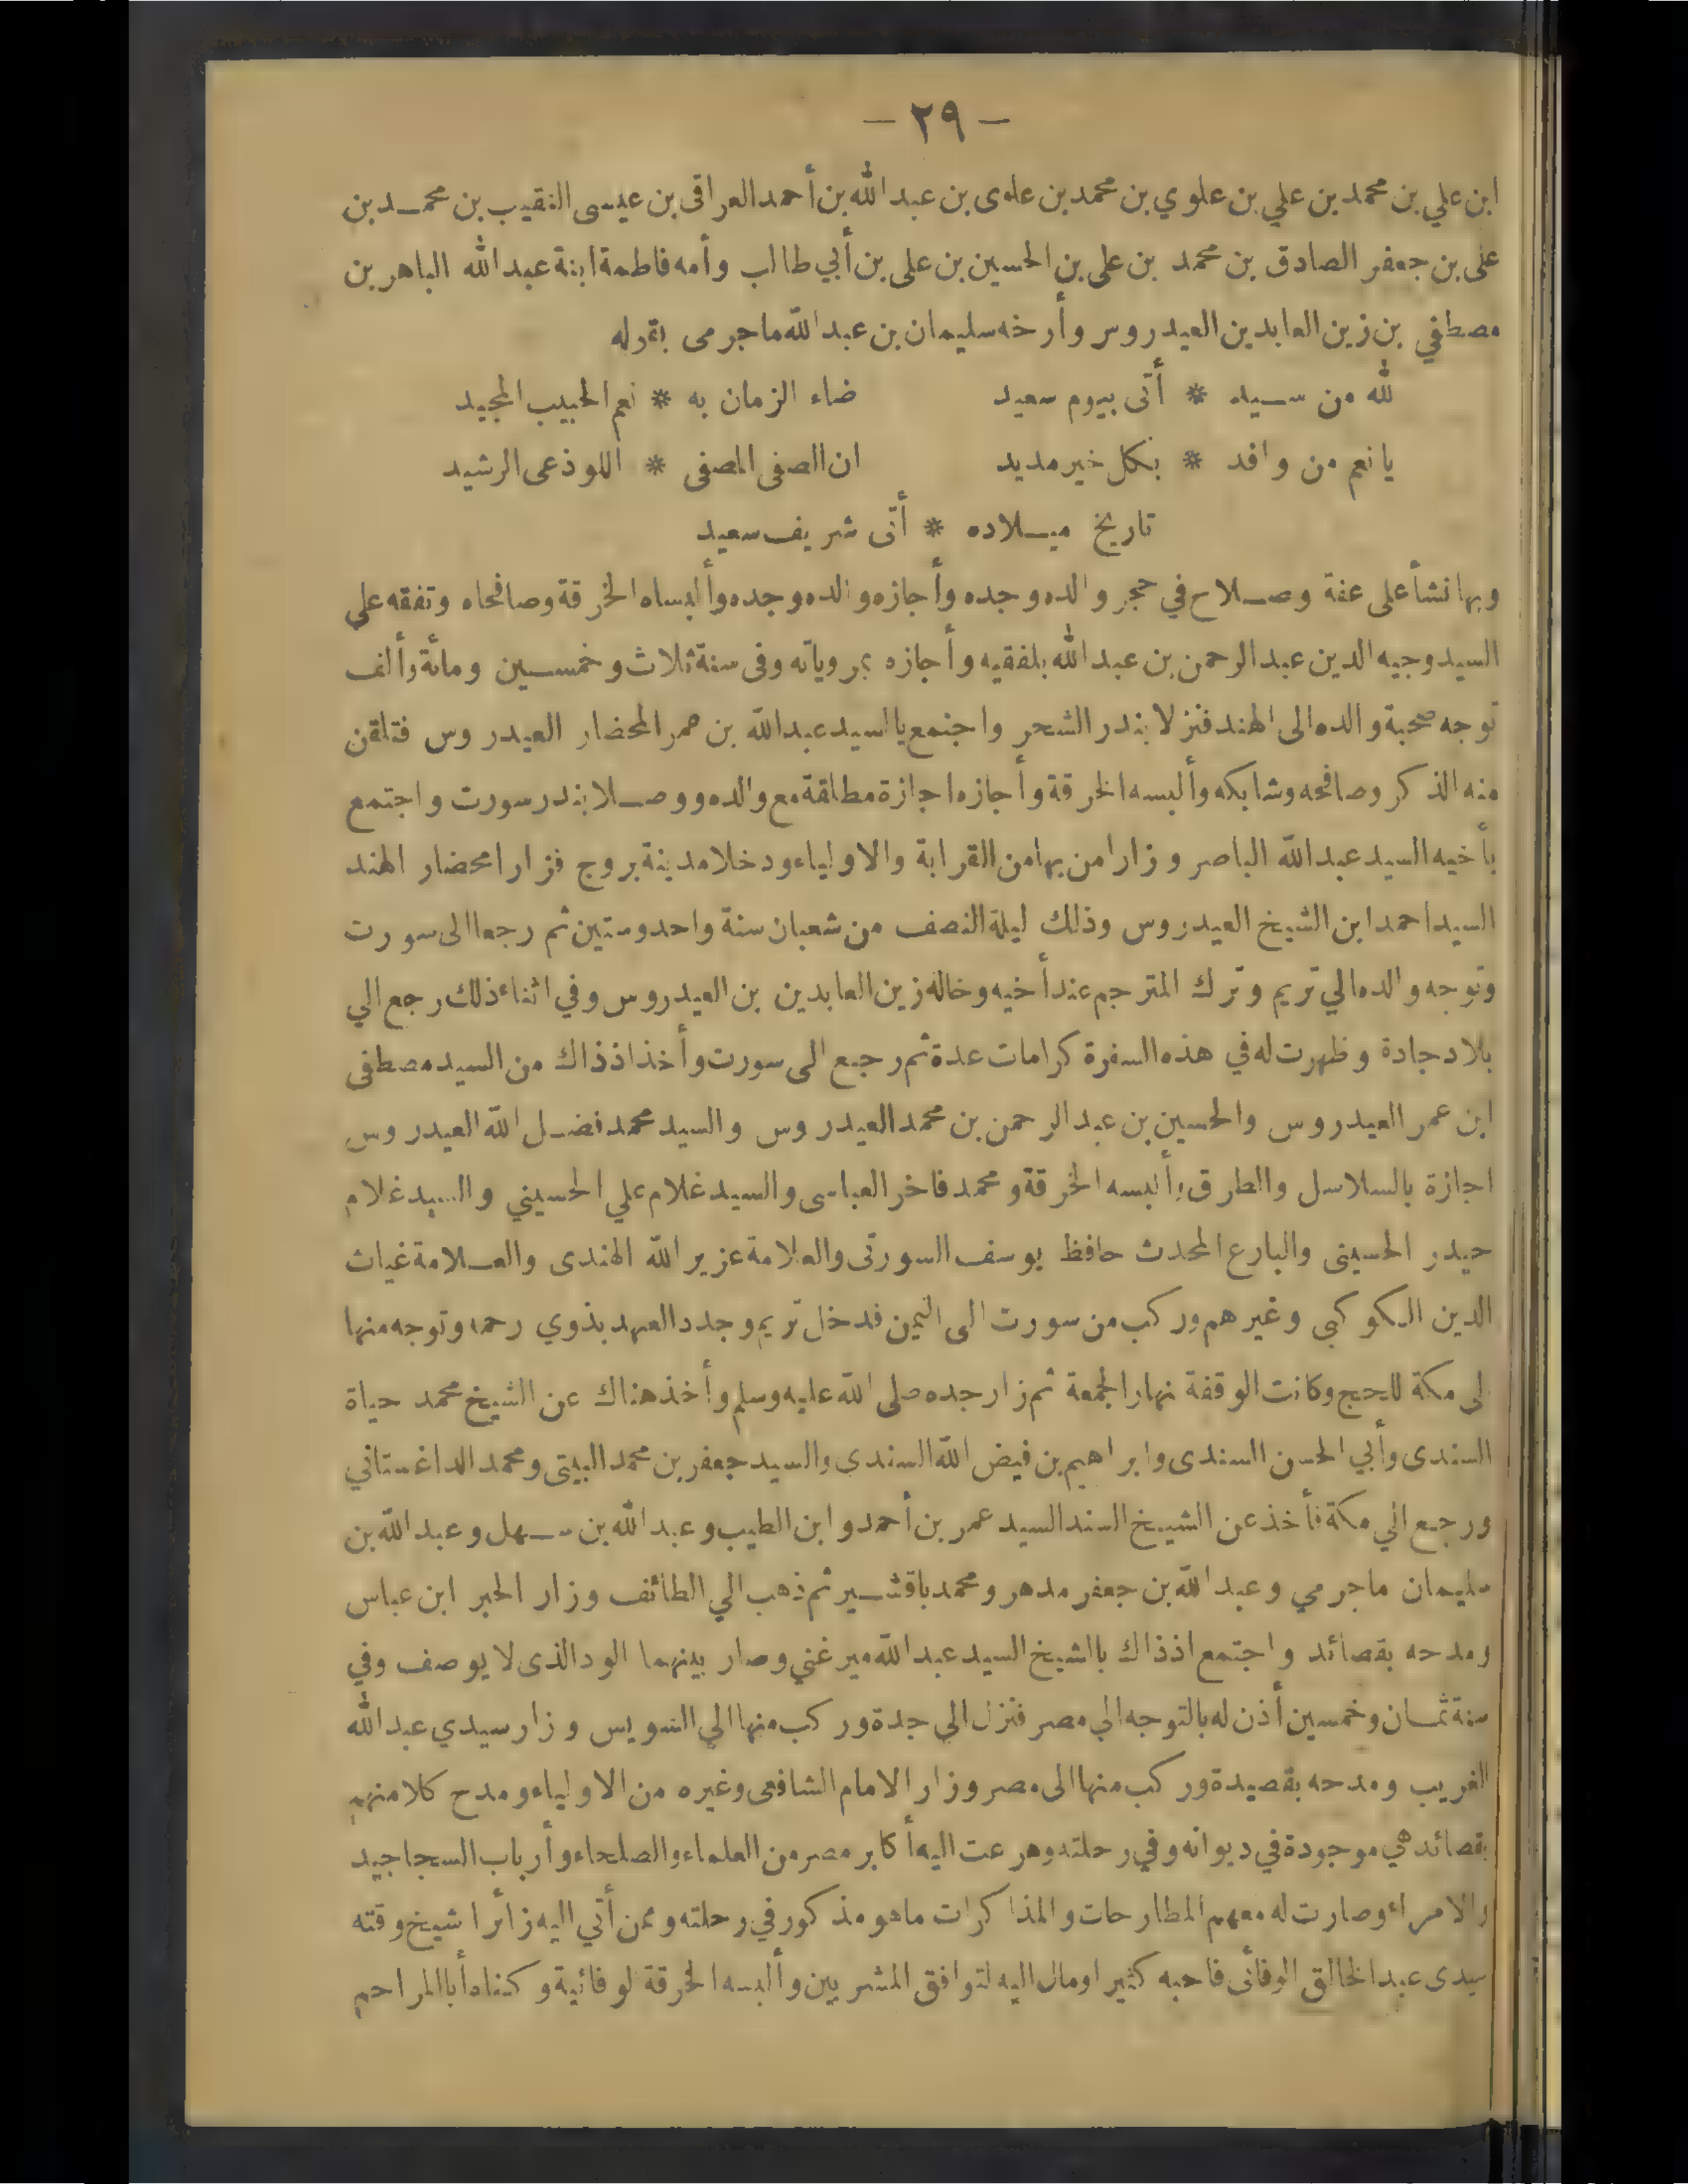 - ٢٩ -
ابن علي بن محمد بن علي بن علوي بن محمد بن علوى بن عبد الله بن أحمد العراقى بن عيسى النقيب بن محمد بن
على بن جعفر الصادق بن محمد بن على بن الحسين بن على بن أبي طالب وأمه فاطمة ابنة عبد الله الباهر بن
مصطفي بن زين العابدين العيدروس وأرخه سليمان بن عبد الله ماجرمى بقوله
لله من سيد * أتى بيوم سعيد ضاء الزمان به * نعم الحبيب المجيد
يا نعم من وافد * بكل خير مديد ان الصفى المصفى * اللوذعى الرشيد
تاريخ ميلاده * أتى شريف سعيد
وبها نشأ على عفة وصلاح في حجر والده وجده وأجازه والده وجده وألبساه الخرقة وصافحاه وتفقه علي
السيد وجيه الدين عبد الرحمن بن عبد الله بلفقيه وأجازه بمروياته وفى سنة ثلاث وخمسين ومائة وألف
توجه صحبة والده الى الهند فنزلا بندر الشحر واجتمع يالسيد عبد الله بن عمر المحضار العيدروس فتلقن
منه الذكر وصافحه وشابكه وألبسه الخرقة وأجازه اجازة مطلقة مع والده ووصلا بندر سورت واجتمع
بأخيه السيد عبد الله الباصر وزارا من بها من القرابة والاولياء ودخلا مدينة بروج فزارا محضار الهند
السيد احمد ابن الشيخ العيدروس وذلك ليلة النصف من شعبان سنة واحد وستين ثم رجعا الى سورت
وتوجه والده الي تريم وترك المترجم عند أخيه وخاله زين العابدين بن العيدروس وفي اثناء ذلك رجع الي
بلاد جادة وظهرت له في هذه السفرة كرامات عدة ثم رجع الى سورت وأخذ اذذاك من السيد مصطفى
ابن عمر العيدروس والحسين بن عبد الرحمن بن محمد العيدروس والسيد محمد فضل الله العيدروس
اجازة بالسلاسل والطرق وألبسه الخرقة ومحمد فاخر العباسى والسيد غلام علي الحسيني والسيد غلام
حيدر الحسينى والبارع المحدث حافظ يوسف السورتى والعلامة عزيز الله الهندى والعلامة غياث
الدين الكوكبى وغيرهم وركب من سورت الى اليمن فدخل تريم وجدد العهد بذوي رحمه وتوجه منها
لى مكة للحج وكانت الوقفة نهار الجمعة ثم زار جده صلى الله عليه وسلم وأخذ هناك عن الشيخ محمد حياة
السندى وأبي الحسن السندى وابراهيم بن فيض الله السندى والسيد جعفر بن محمد البيتى ومحمد الداغستاني
ورجع الي مكة فأخذ عن الشيخ السند السيد عمر بن أحمد وابن الطيب وعبد الله بن سهل وعبد الله بن
سليمان ماجرمي وعبد الله بن جعفر مدهر ومحمد باقشير ثم ذهب الي الطائف وزار الحبر ابن عباس
ومدحه بقصائد واجتمع اذذاك بالشيخ السيد عبد الله ميرغني وصار بينهما الود الذى لا يوصف وفي
سنة ثمان وخمسين أذن له بالتوجه الي مصر فنزل الي جدة وركب منها الي السويس وزار سيدي عبد الله
الغريب ومدحه بقصيدة وركب منها الى مصر وزار الامام الشافعى وغيره من الاولياء ومدح كلا منهم
بقصائد هي موجودة في ديوانه وفي رحلته وهرعت اليه أكابر مصر من العلماء والصلحاء وأرباب السجاجيد
والامراء وصارت له معهم المطارحات والمذاكرات ما هو مذكور في رحلته وممن أتي اليه زائرا شيخ وقته
سيدى عبد الخالق الوفائى فاحبه كثيرا ومال اليه لتوافق المشربين وألبسه الخرقة لوفائية وكناه أبا المراحم